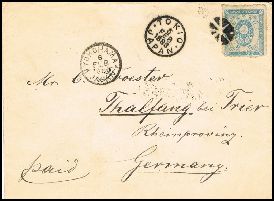 TOKIO
JAPAN
YOKOHAMA
Mr. C. Forster
Thalfang bei Trier
Rheinprovinz
paid
Germany.